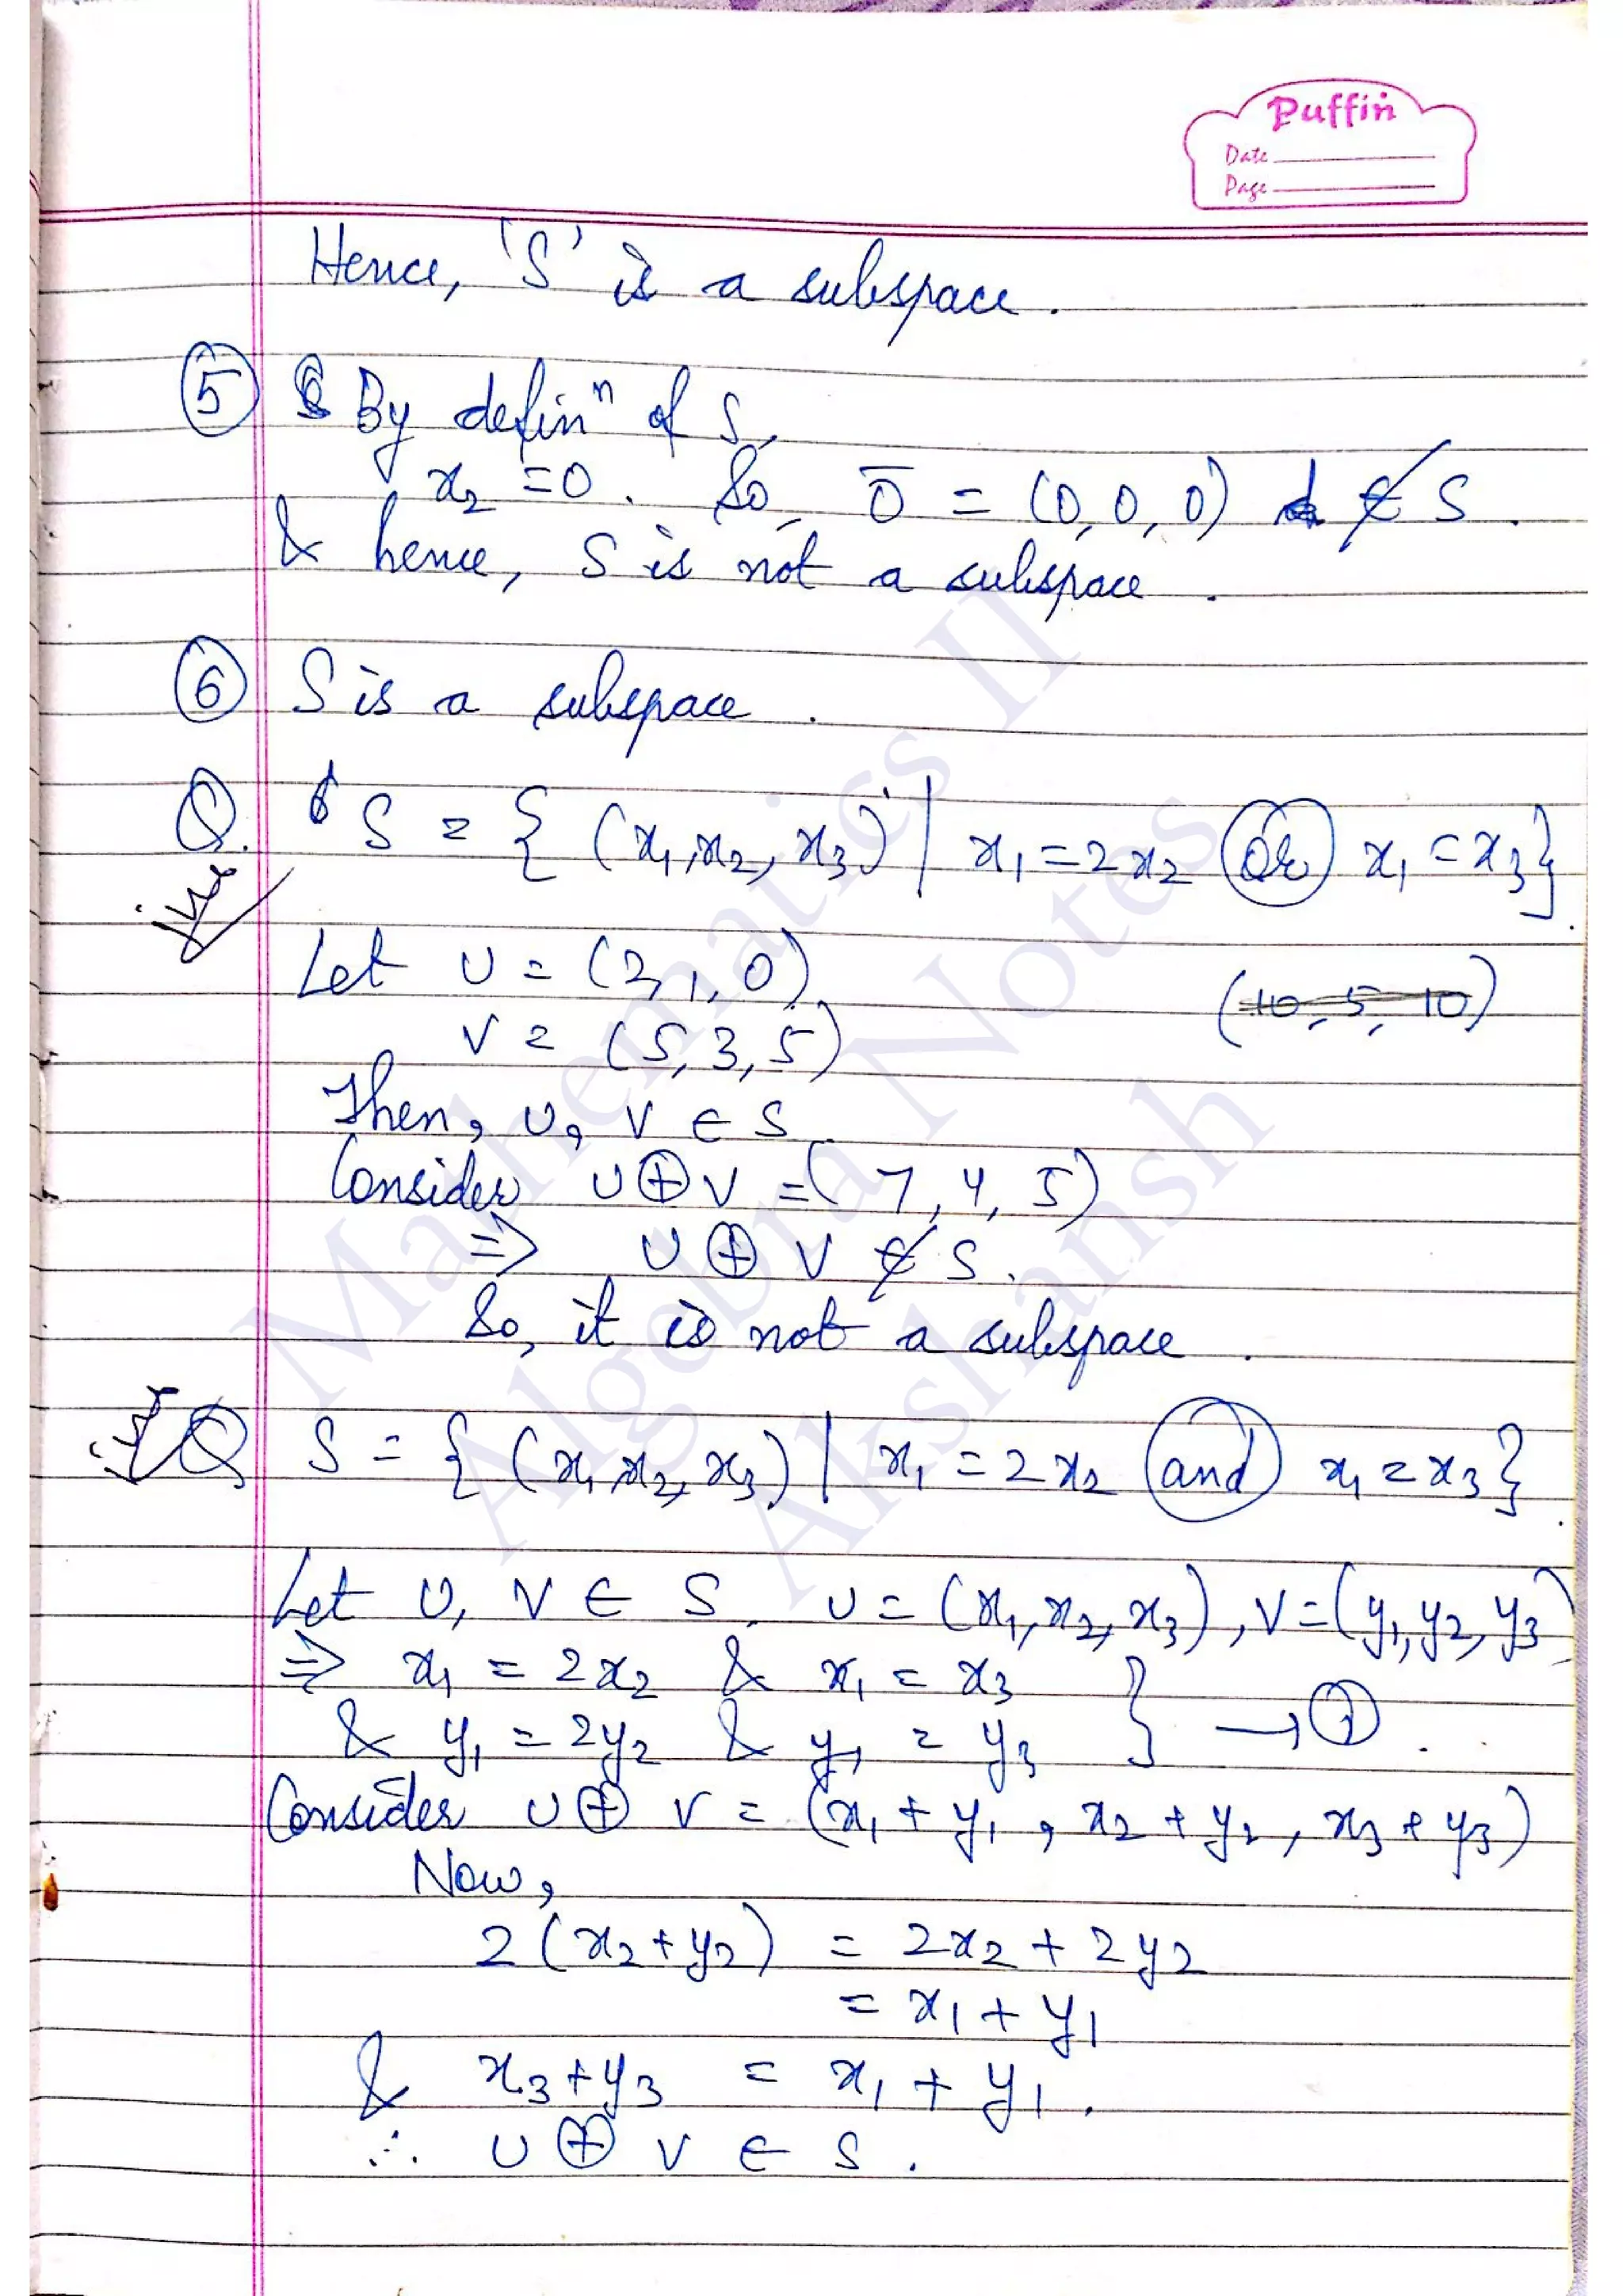 Puffin
Date
Page
Hence, 'S' is a subspace.
⑤ By definⁿ of S,
x₂ = 0. So, 0̅ = (0, 0, 0) ∉ S.
& hence, S is not a subspace.
⑥ S is a subspace.
Q. S = { (x₁, x₂, x₃) | x₁ = 2x₂ or x₁ = x₃}.
Let U = (2, 1, 0)
(10, 5, 10)
V = (5, 3, 5)
Then, U, V ∈ S
Consider U ⊕ V = (7, 4, 5)
⇒ U ⊕ V ∉ S.
So, it is not a subspace.
Q S = { (x₁, x₂, x₃) | x₁ = 2x₂ and x₁ = x₃}.
Let U, V ∈ S. U = (x₁, x₂, x₃), V = (y₁, y₂, y₃)
⇒ x₁ = 2x₂ & x₁ = x₃
& y₁ = 2y₂ & y₁ = y₃ } → ①.
Consider U ⊕ V = (x₁ + y₁, x₂ + y₂, x₃ + y₃)
Now,
2(x₂ + y₂) = 2x₂ + 2y₂
= x₁ + y₁
& x₃ + y₃ = x₁ + y₁.
∴ U ⊕ V ∈ S.
Mathematics II
Algebra Notes
Akshansh